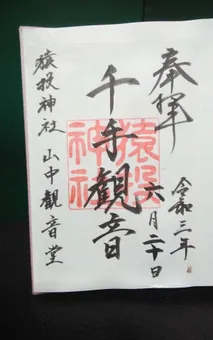 奉拜
令和三年
六月二十日
千手觀音
猿投
神社
猿投神社 山中觀音堂